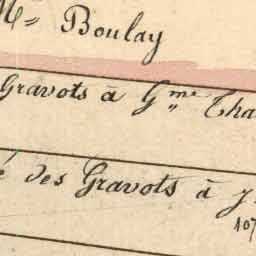 Mr Boulay
Gravots à Gme
é des Gravots à
107